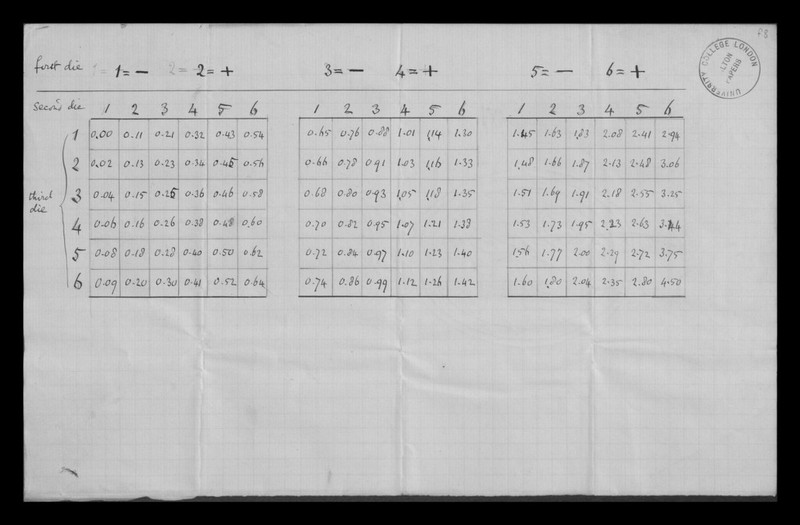 first die 1= − 2= + 3= − 4= + 5= − 6= +
second die 1 2 3 4 5 6 1 2 3 4 5 6 1 2 3 4 5 6
third die
1 0.00 0.11 0.21 0.32 0.43 0.54 0.65 0.76 0.88 1.01 1.14 1.30 1.45 1.63 1.83 2.08 2.41 2.94
2 0.02 0.13 0.23 0.34 0.45 0.56 0.66 0.78 0.91 1.03 1.16 1.33 1.48 1.66 1.87 2.13 2.48 3.06
3 0.04 0.15 0.25 0.36 0.46 0.58 0.68 0.80 0.93 1.05 1.18 1.35 1.51 1.69 1.91 2.18 2.55 3.25
4 0.06 0.16 0.26 0.38 0.48 0.60 0.70 0.82 0.95 1.07 1.21 1.38 1.53 1.73 1.95 2.23 2.63 3.44
5 0.08 0.18 0.28 0.40 0.50 0.62 0.72 0.84 0.97 1.10 1.23 1.40 1.56 1.77 2.00 2.29 2.72 3.75
6 0.09 0.20 0.30 0.41 0.52 0.64 0.74 0.86 0.99 1.12 1.26 1.42 1.60 1.80 2.04 2.35 2.80 4.50
UNIVERSITY COLLEGE LONDON
PAPERS